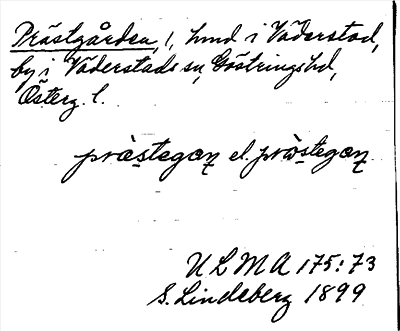 Prästgården, 1, hmd i Väderstad,
by i Väderstads sn, Göstrings hd,
Österg. l.
prästegaɲ el. prästegaɲ
ULMA 175:73
S. Lindeberg 1899